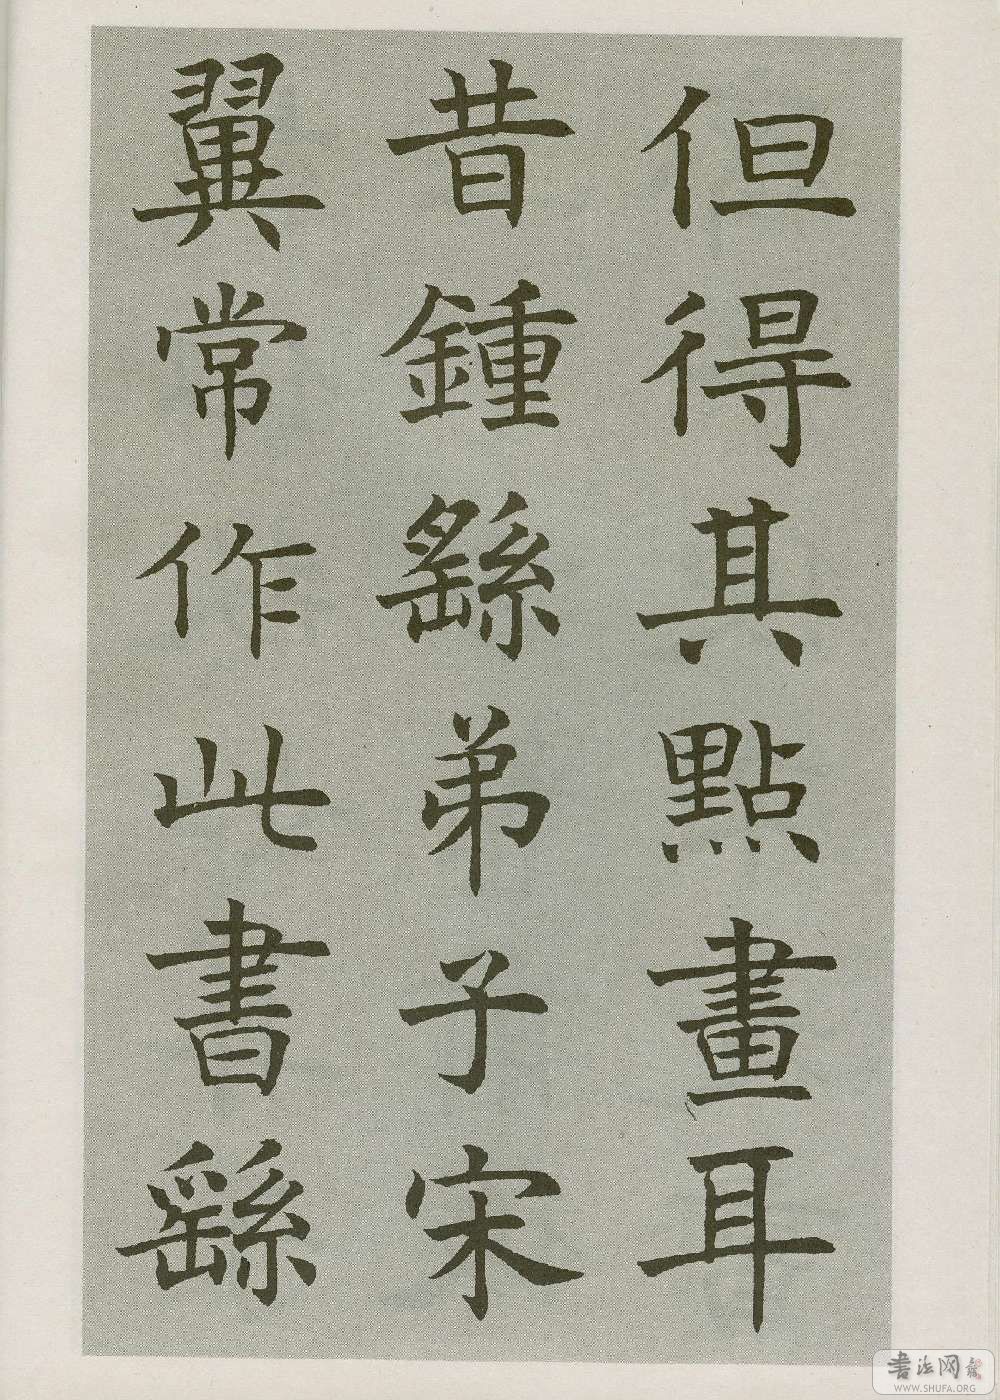 但得其點畫耳
昔鍾繇弟子宋
翼常作此書繇
書法网
WWW.SHUFA.ORG